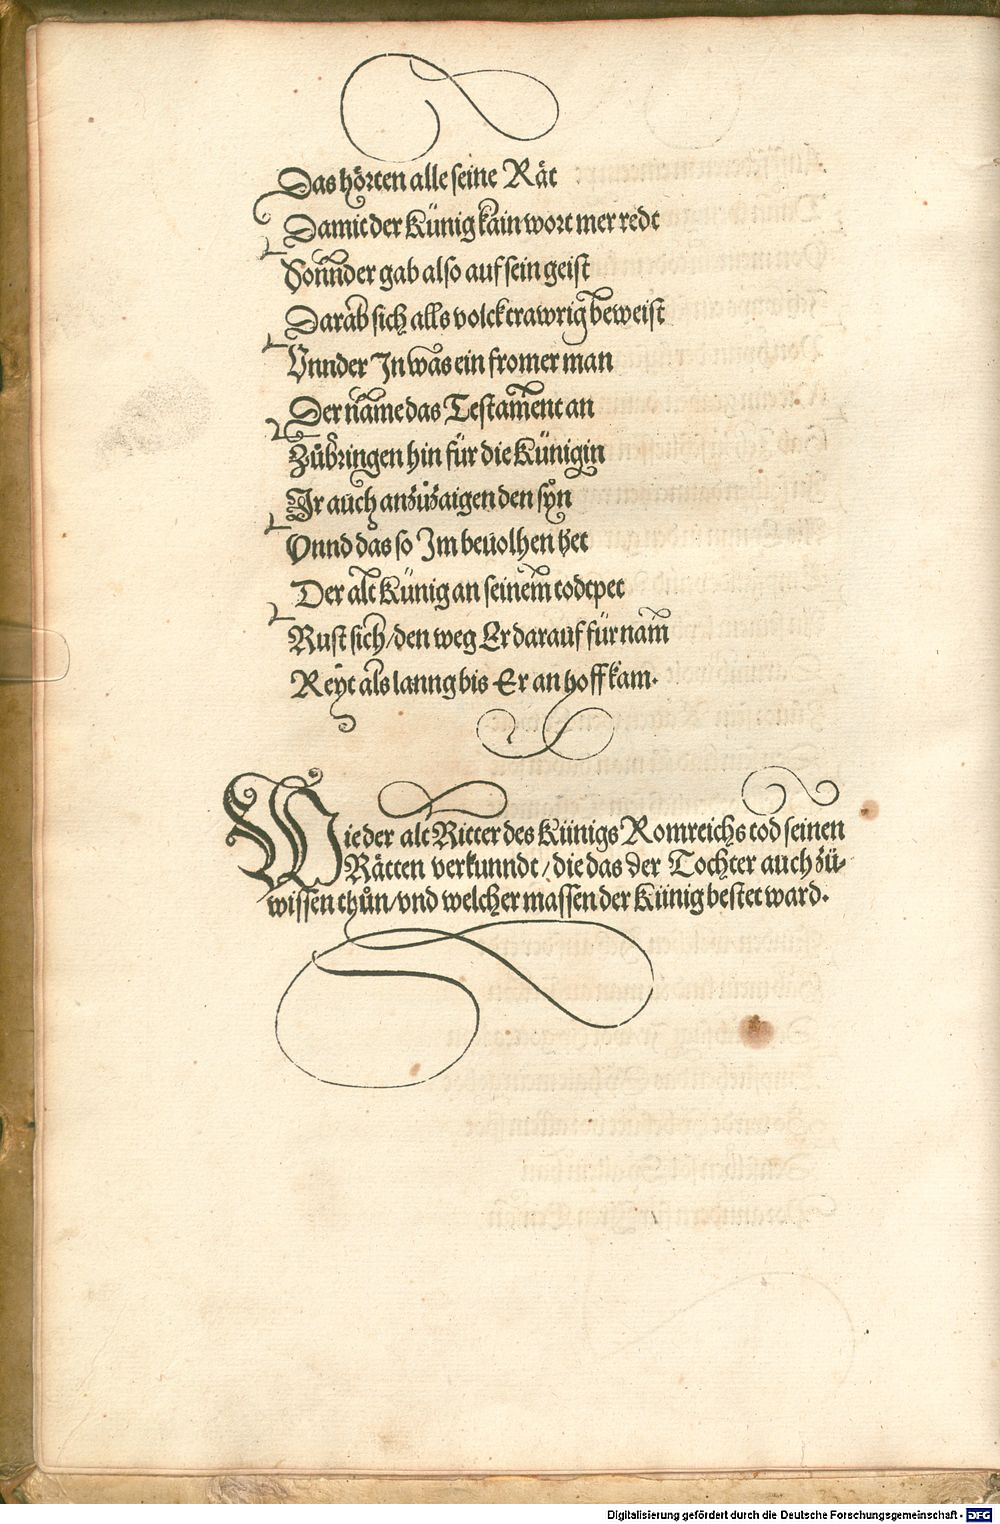 Das hörten alle seine Rät
Damit der Künig kain wort mer redt
Sonnder gab also auf sein geist
Darab sich alls volck trawrig beweist
Vnnder In was ein fromer man
Der name das Testament an
Zůbringen hin für die Künigin
Ir auch anzůzaigen den syn
Vnnd das so Im beuolhen het
Der alt Künig an seinem todtpet
Rust sich / den weg Er darauf fürnam
Reyt als lanng bis Er an hoff kam.
Wie der alt Ritter des Künigs Romreichs tod seinen
Rätten verkunndt / die das der Tochter auch zů-
wissen thůn / vnd welcher massen der Künig bestet ward.
Digitalisierung gefördert durch die Deutsche Forschungsgemeinschaft - DFG